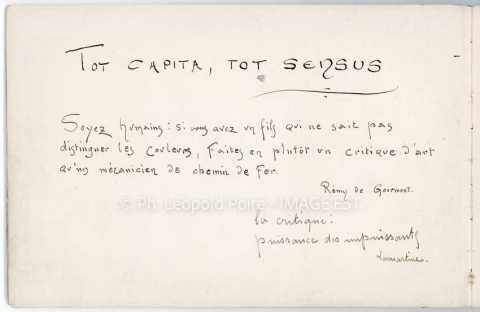 TOT CAPITA, TOT SENSUS
Soyez humains : si vous avez un fils qui ne sait pas
distinguer les couleurs, Faites en plutôt un critique d'art
qu'un mécanicien de chemin de Fer.
Rémy de Gourmont.
© Ph. Léopold Poiré - IMAGEST
La critique :
puissance des impuissants
Lamartine.